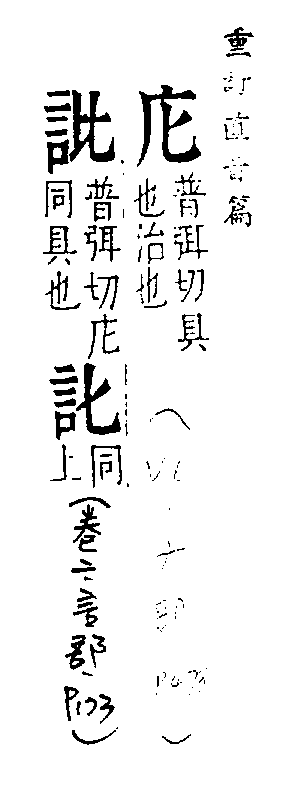 重訂直音篇
庀
普弭切具
也治也
普弭切庀
同具也
同
上
(卷二言部、P173)